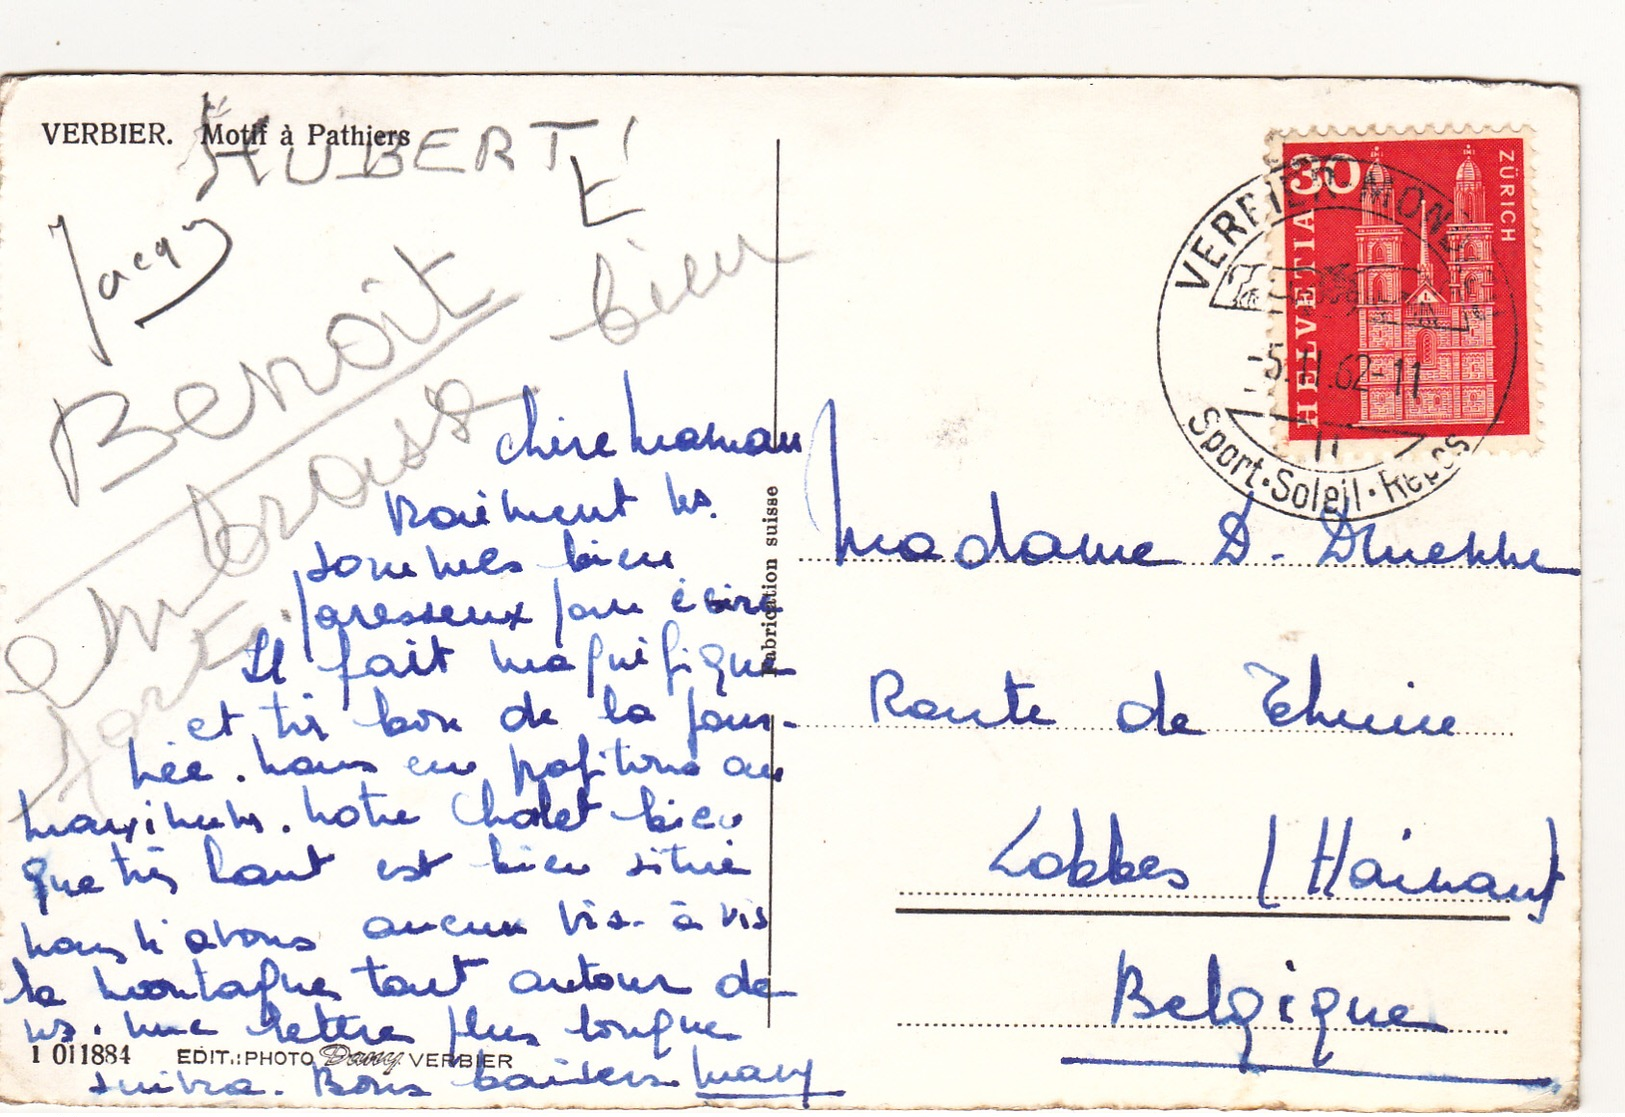 VERBIER. Motif à Pathiers
HUBERT!
Jacqy
E
Benoit
embrasse bien
fort
chère maman
Vraiment ns.
sommes bien
paresseux pour écrire
Il fait magnifique
et très bon de la jour-
née. nous en profitons au
maximum. notre chalet bien
que très haut est bien situé
nous n'avons aucun vis-à vis
la montagne tout autour de
ns. une lettre plus longue
suivra. Bons baisers many
1 011884 EDIT.: PHOTO Dany VERBIER
Fabrication suisse
HELVETIA 30 ZÜRICH
VERBIER-MOND
-5.II.62-11
Sport·Soleil·Repos
Madame D.
Route de Thuin
Lobbes (Hainaut)
Belgique